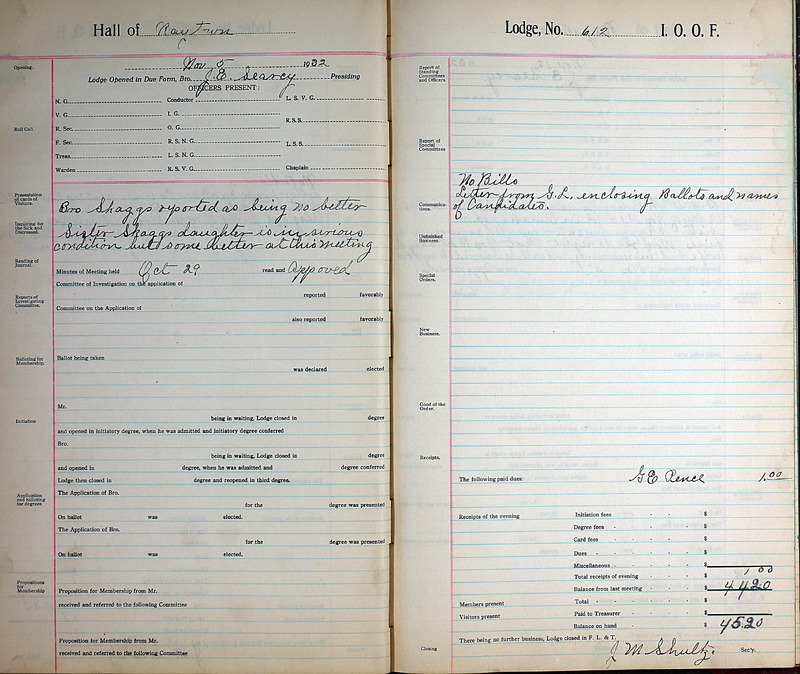 Hall of Raytown
Nov. 5 1932
Opening.
Lodge Opened in Due Form, Bro. J.E. Searcy Presiding
OFFICERS PRESENT:
N. G. Conductor L. S. V. G.
V. G. I. G.
R.S.S.
Roll Call. R. Sec. O. G.
F. Sec. R. S. N. G. L. S. S.
Treas. L. S. N. G.
Warden R. S. V. G. Chaplain
Presentation of cards of Visitors.
Bro Skaggs reported as being no better
Inquiring for the Sick and Distressed.
Sister Skaggs daughter is in sirious
condition but some better at this meeting
Reading of Journal.
Minutes of Meeting held Oct 29 read and Appoved
Committee of Investigation on the application of
Reports of Investigating Committee.
reported favorably
Committee on the Application of
also reported favorably
Balloting for Membership.
Ballot being taken
was declared elected
Mr.
Initiation
being in waiting, Lodge closed in degree
and opened in initiatory degree, when he was admitted and initiatory degree conferred
Bro.
being in waiting, Lodge closed in degree
and opened in degree, when he was admitted and degree conferred
Lodge then closed in degree and reopened in third degree.
Application and balloting for degrees
The Application of Bro.
for the degree was presented
On ballot was elected.
The Application of Bro.
for the degree was presented
On ballot was elected.
Propositions for Membership
Proposition for Membership from Mr.
received and referred to the following Committee
Proposition for Membership from Mr.
received and referred to the following Committee
Lodge, No. 612 I. O. O. F.
Report of Standing Committees and Officers.
Report of Special Committees
No Bills
Letter from G.L. enclosing Ballots and names
Communications.
of Candidates.
Unfinished Business.
Special Orders.
New Business.
Good of the Order.
Receipts.
The following paid dues: G E Pence 1.00
Receipts of the evening Initiation fees $
Degree fees $
Card fees $
Dues $
Miscellaneous $
Total receipts of evening $ 1,00
Balance from last meeting $ 44.20
Members present Total $
Visitors present Paid to Treasurer $
Balance on hand $ 45.20
There being no further business, Lodge closed in F. L. & T.
Closing J M Shultz. Sec'y.